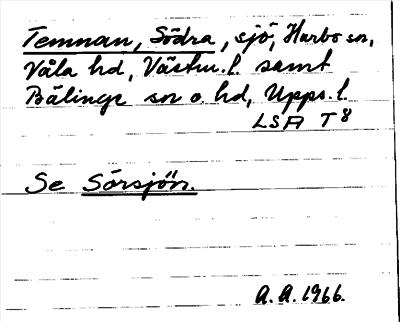 Temnan, Södra, sjö, Harbo sn,
Våla hd, Västm. l. samt
Bälinge sn o. hd, Upps. l.
LSA T8
Se Sörsjön.
A. A. 1966.